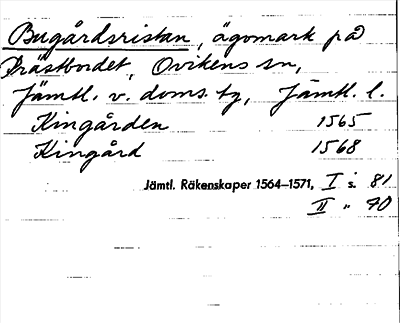 Bugårdsristan, ägomark på
Prästbordet, Ovikens sn,
Jämtl. v. doms. tg, Jämtl. l.
Kingården 1565
Kingård 1568
Jämtl. Räkenskaper 1564–1571, I s. 81
II " 70